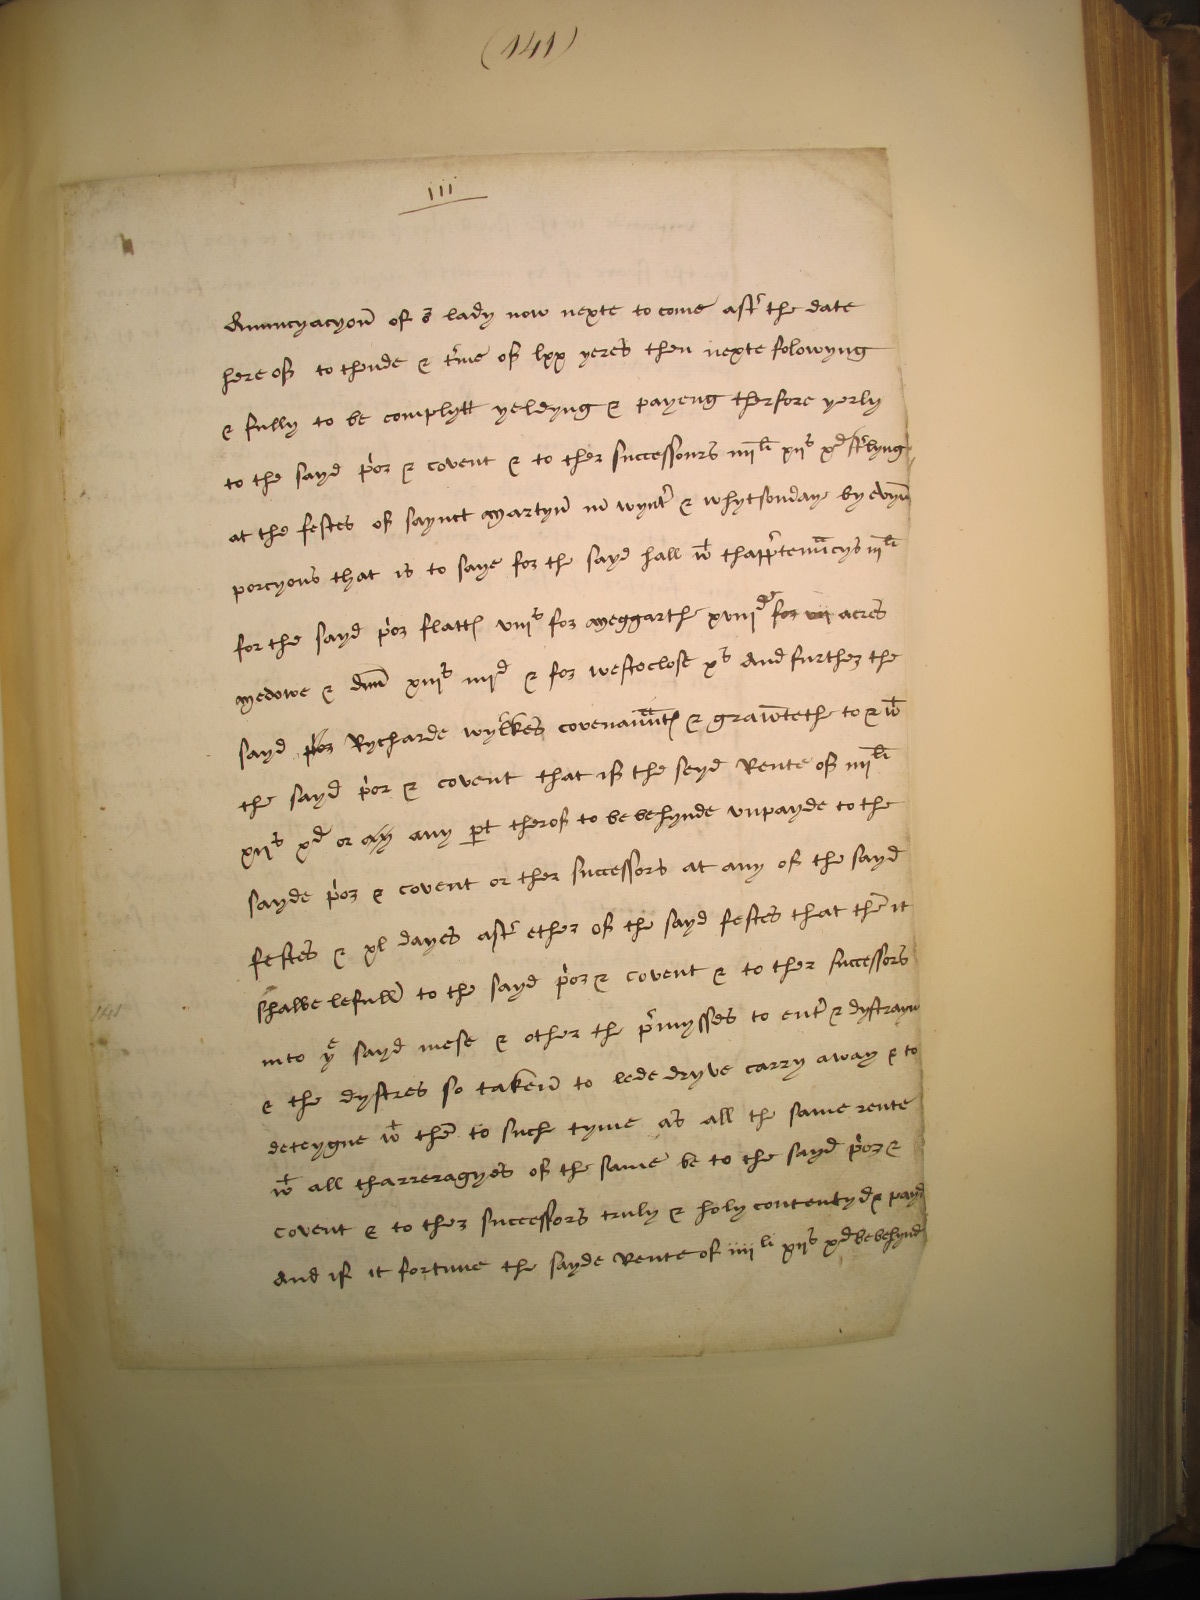 (141)
iii
Annuncyacyon̄ of oͬ lady now nexte to come aft͛ the date
here off to thende & t͛me off lxx yeres then nexte folowyng
& fully to be complytt yeldyng & payeng therfore yerly
to the sayd p͛or & covent & to ther successours iiii li xiis xd st͛lyng
at the festes off saynct martyn̄ in wynt͛ & whytsonday by evyn̄
porcyons that is to saye for the sayd hall wt thapp͛ten̄ncys iii li
for the sayd p͛or flatt viiis for meggarth xviiid for vii acres
medowe & dim̄ xiiis iiiid & for westeclose xs And further the
sayd p͛or Rycharde wylkes covenaunt & graunteth to & wt
the sayd p͛or & covent that iff the seyd Rente off iiii li
xiis xd or ay any ꝑt theroff to be behynde vnpayde to the
sayde p͛or & covent or ther successors at any of the sayd
festes & xl dayes aft͛ ether off the sayd festes that then̄ it
shalbe lefull to the sayd p͛or & covent & to ther successors
into ye sayd mese & other the p͛mysses to ent͛ & dystrayn
& the dystres so taken̄ to lede dryve carry away & to
deteygne wt them̄ to such tyme as all the same rente
wt all tharreragyes off the same be to the sayd p͛or &
covent & to ther successors truly & holy contentyd & payd
And iff it fortune the sayde Rente of iiii li xiis xd be behynd
141